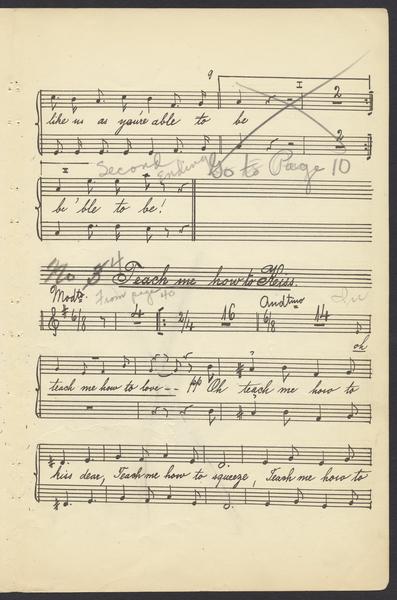 9
I 2
like us as you're able to be
2
Second Ending Go to Page 10
II
be 'ble to be!
No 5 4 Teach me how to Kiss.
Modto. From page 40 Andtino
6/8 4 2/4 16 6/8 14
oh
teach me how to love -- Oh teach me how to
kiss dear, Teach me how to squeeze, Teach me how to